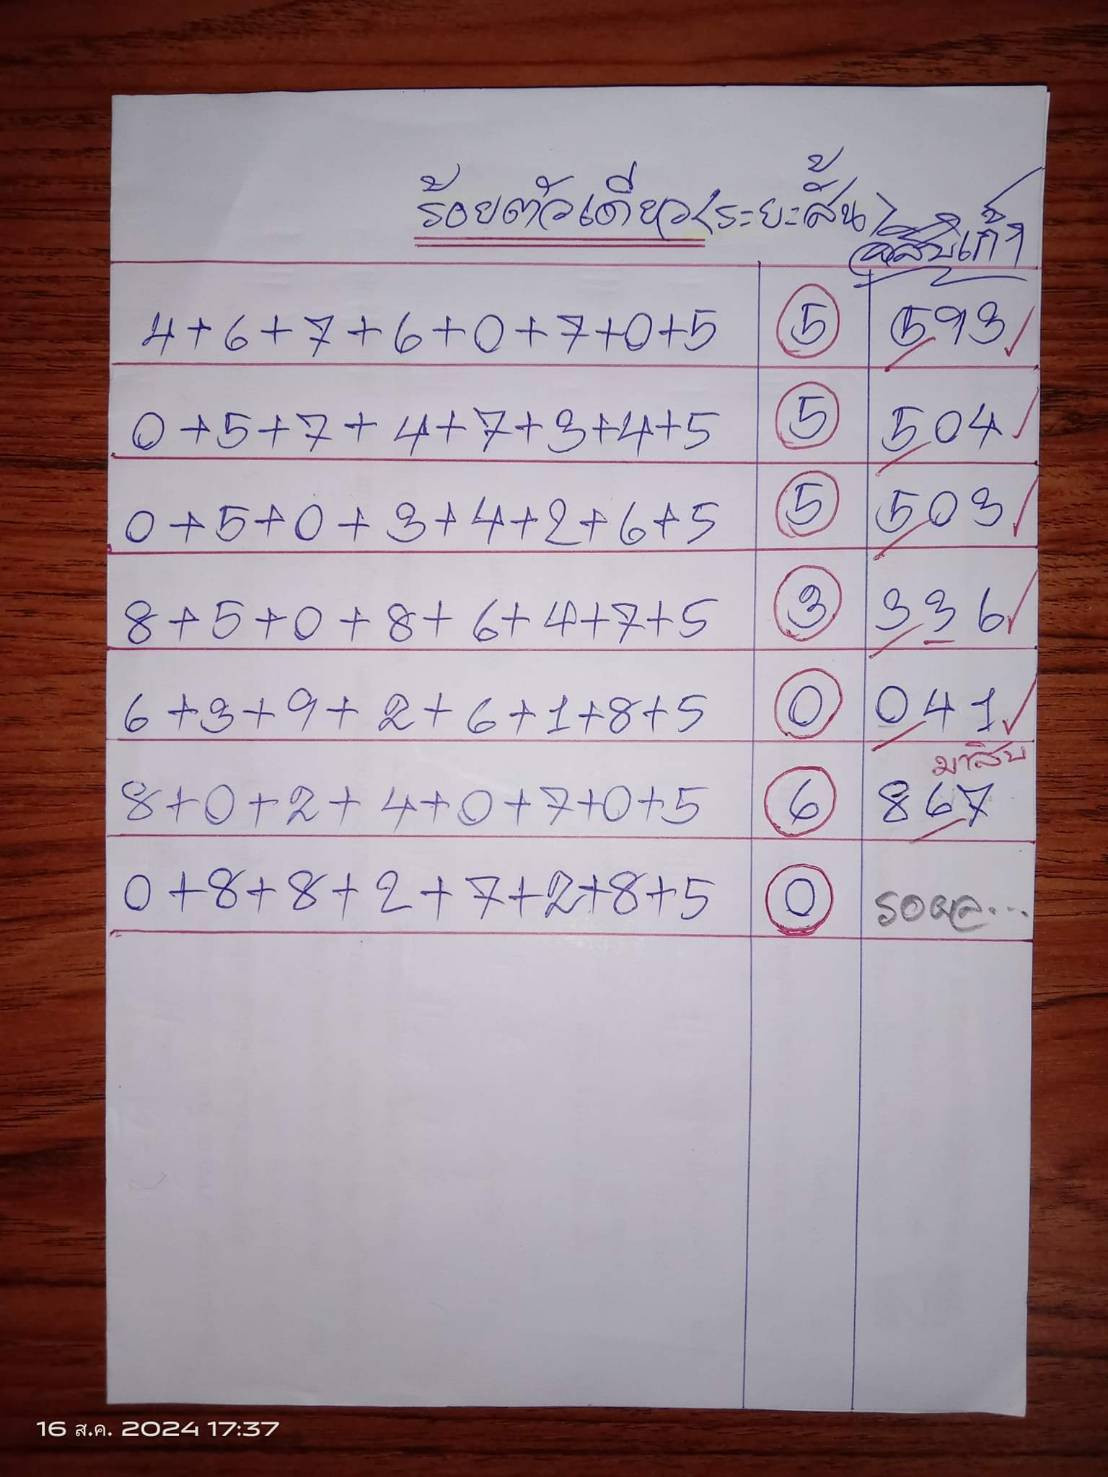 ร้อยตัวเดียว(ระยะสั้น)
สิบเก้า
4+6+7+6+0+7+0+5 5 593
0+5+7+4+7+3+4+5 5 504
0+5+0+3+4+2+6+5 5 503
8+5+0+8+6+4+7+5 3 336
6+3+9+2+6+1+8+5 0 041
มาสิบ
8+0+2+4+0+7+0+5 6 867
0+8+8+2+7+2+8+5 0 รอผล...
16 ส.ค. 2024 17:37